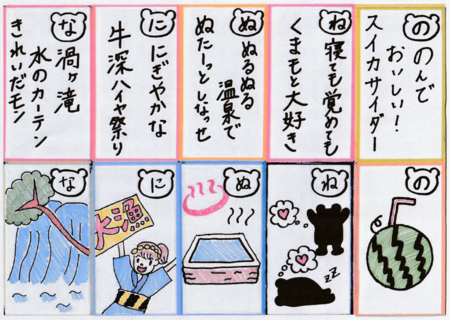 な
鍋ヶ滝
水のカーテン
きれいだモン
に
にぎやかな
牛深ハイヤ祭り
ぬ
ぬるぬる
温泉で
ぬたーっとしなっせ
ね
寝ても覚めても
くまもと大好き
の
のんで
おいしい!
スイカサイダー
な
に
大漁
ぬ
ね
zz
の